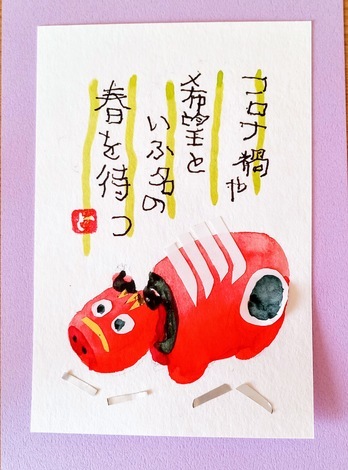 コロナ禍や
希望と
いふ名の
春を待つ